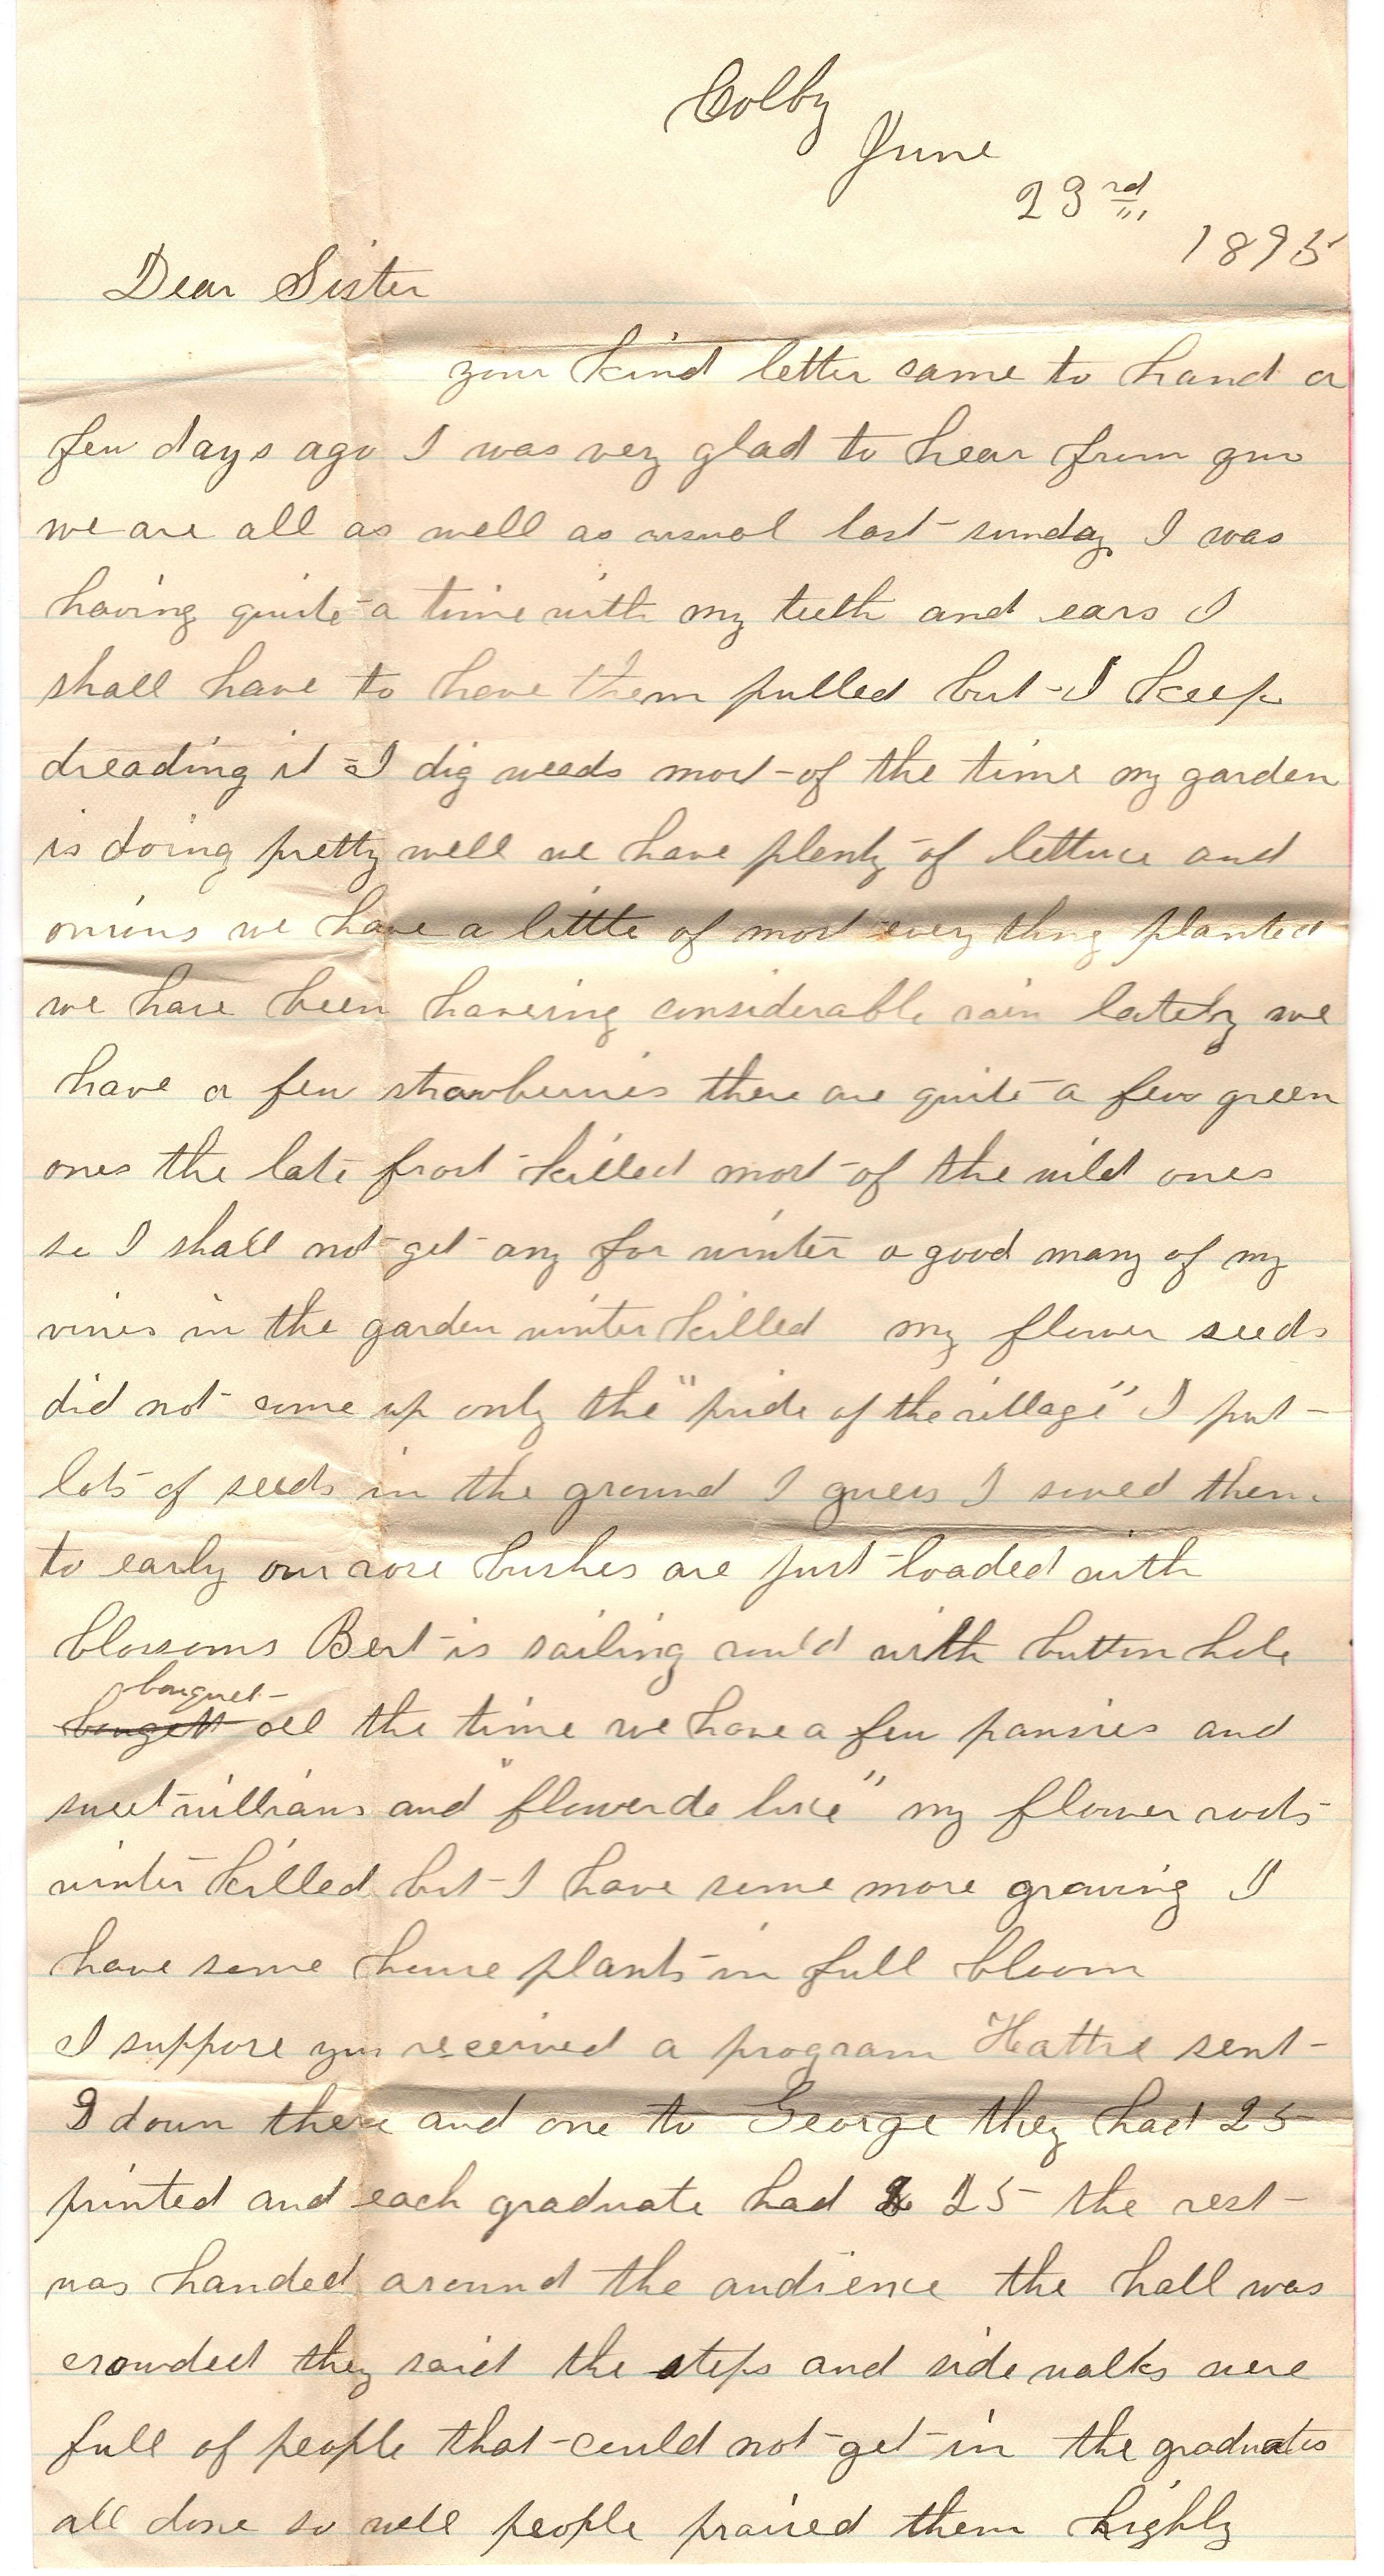 Colby
June
23rd
1895
Dear Sister
your kind letter came to hand a
few days ago I was very glad to hear from you
we are all as well as usual last sunday I was
having quite a time with my teeth and ears I
shall have to have them pulled but I keep
dreading it I dig weeds most of the time my garden
is doing pretty well we have plenty of lettuce and
onions we have a little of most every thing planted
we have been haveing considerable rain lately we
have a few strawberries there are quite a few green
ones the late frost killed most of the wild ones
so I shall not get any for winter a good many of my
vines in the garden winter killed my flower seeds
did not come up only the "pride of the village" I put
lots of seeds in the ground I guess I sowed them
to early our rose bushes are just loaded with
blossoms Bert is sailing round with button hole
bouquet
all the time we have a few pansies and
sweet williams and "flower de luce" my flower roots
winter killed but I have some more growing I
have some house plants in full bloom
I suppose you received a program Hattie sent
I down there and one to George they had 25
printed and each graduate had 25 the rest
was handed around the audience the hall was
crowded they said the steps and side walks were
full of people that could not get in the graduates
all done so well people praised them highly